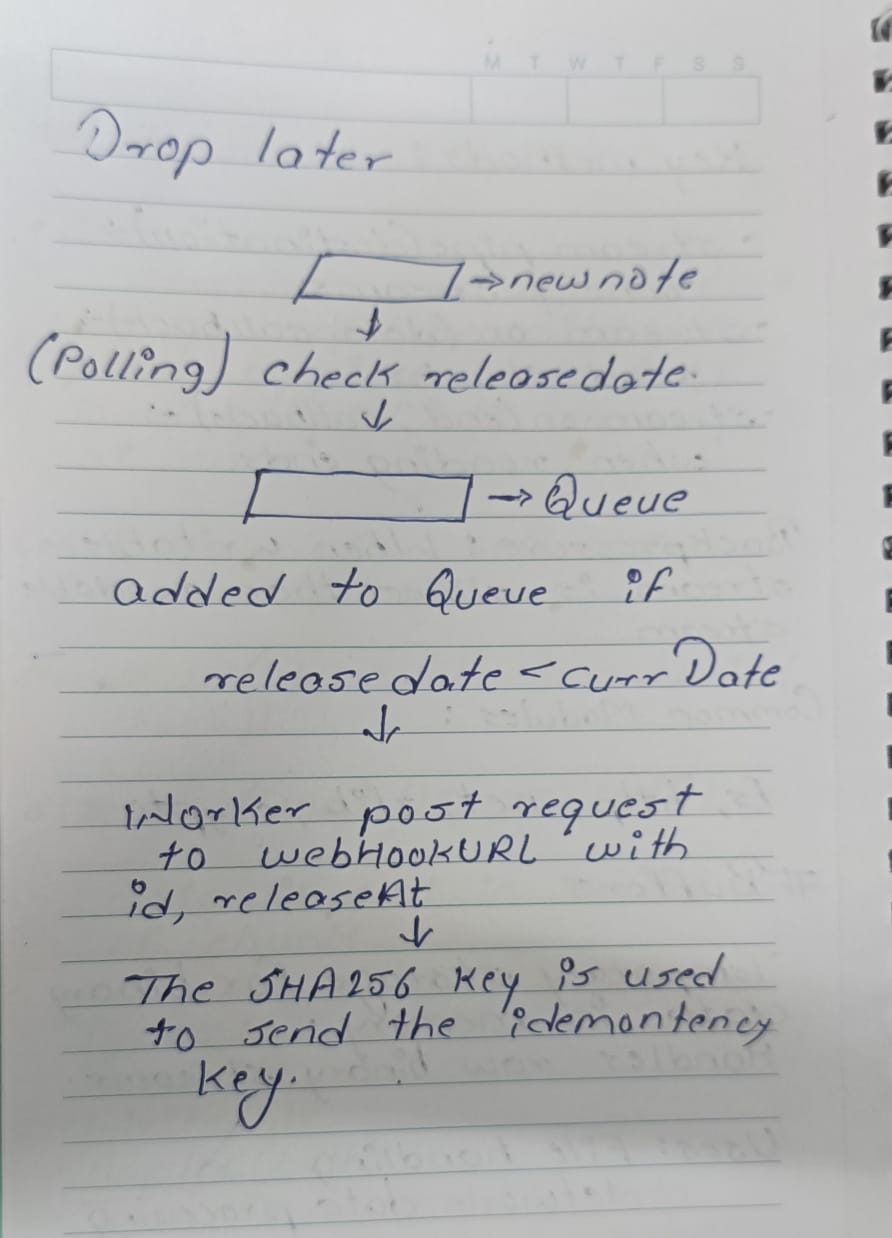 M T W T F S S
Drop later
→ new note
↓
(Polling) check releasedate.
↓
→ Queue
added to Queue if
releasedate < currDate
↓
Worker post request
to webHookURL with
id, releaseAt
↓
The SHA256 key is used
to send the idemontency
key.